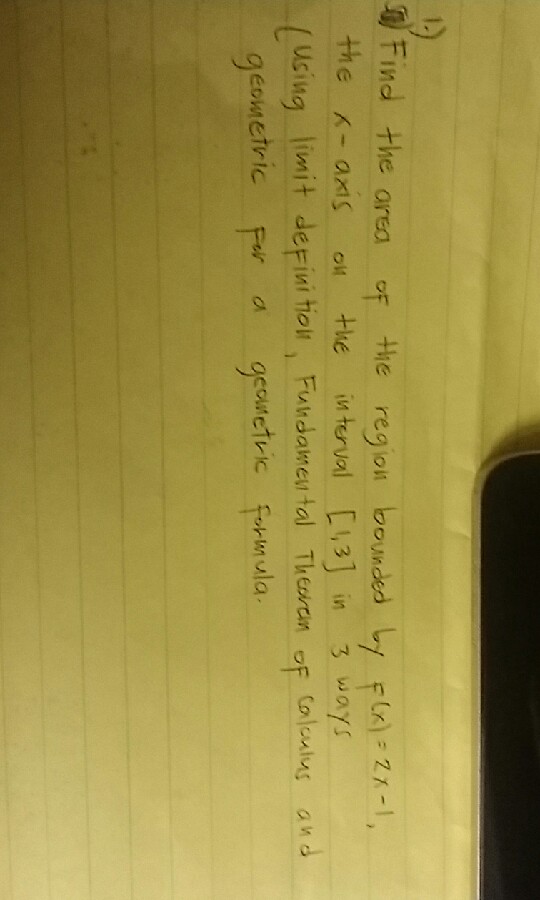 1.)
Find the area of the region bounded by F(x) = 2x-1,
the x-axis on the interval [1,3] in 3 ways
(Using limit definition, Fundamental Theorem of Calculus and
geometric for a geometric formula.